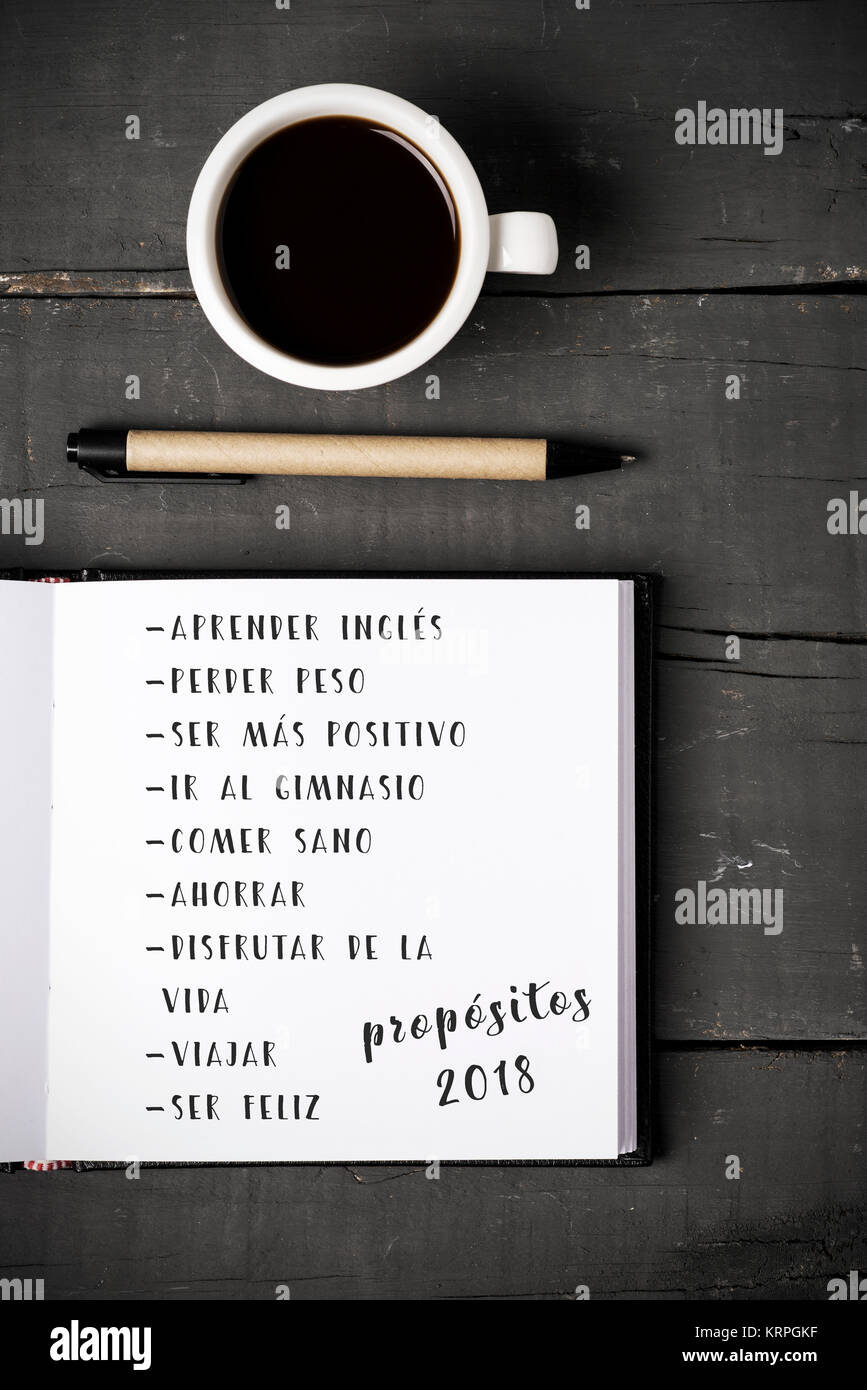 -APRENDER INGLÉS
-PERDER PESO
-SER MÁS POSITIVO
-IR AL GIMNASIO
-COMER SANO
-AHORRAR
-DISFRUTAR DE LA
VIDA
-VIAJAR
-SER FELIZ
propósitos
2018
alamy
a
alamy
alamy stock photo
Image ID: KRPGKF
www.alamy.com